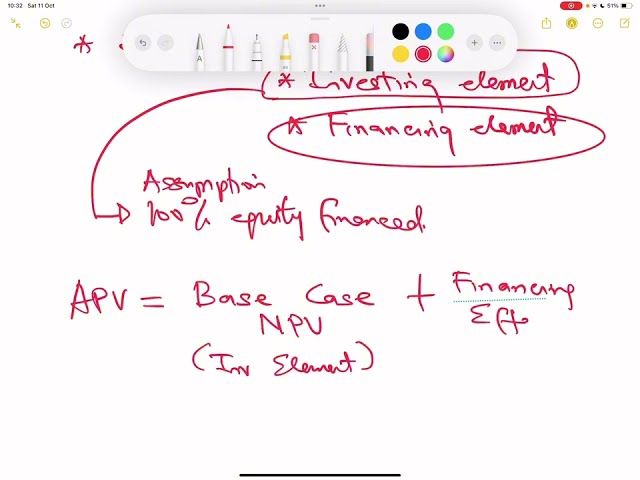 10:32 Sat 11 Oct
51%
*
* Investing element
* Financing element
Assumption
100% equity financed.
APV = Base Case NPV + Financing Eff
(Inv Element)